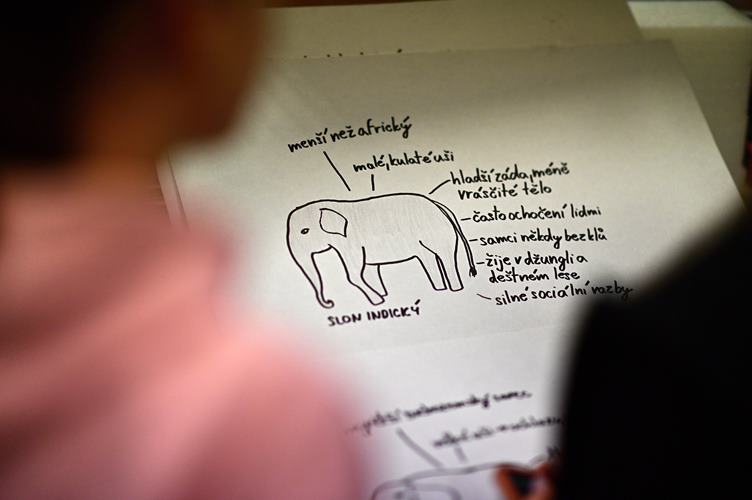 menší než africký
malé, kulaté uši
hladší záda, méně
vrásčité tělo
často ochočení lidmi
samci někdy bez klů
žije v džungli a
deštném lese
silné sociální vazby
SLON INDICKÝ